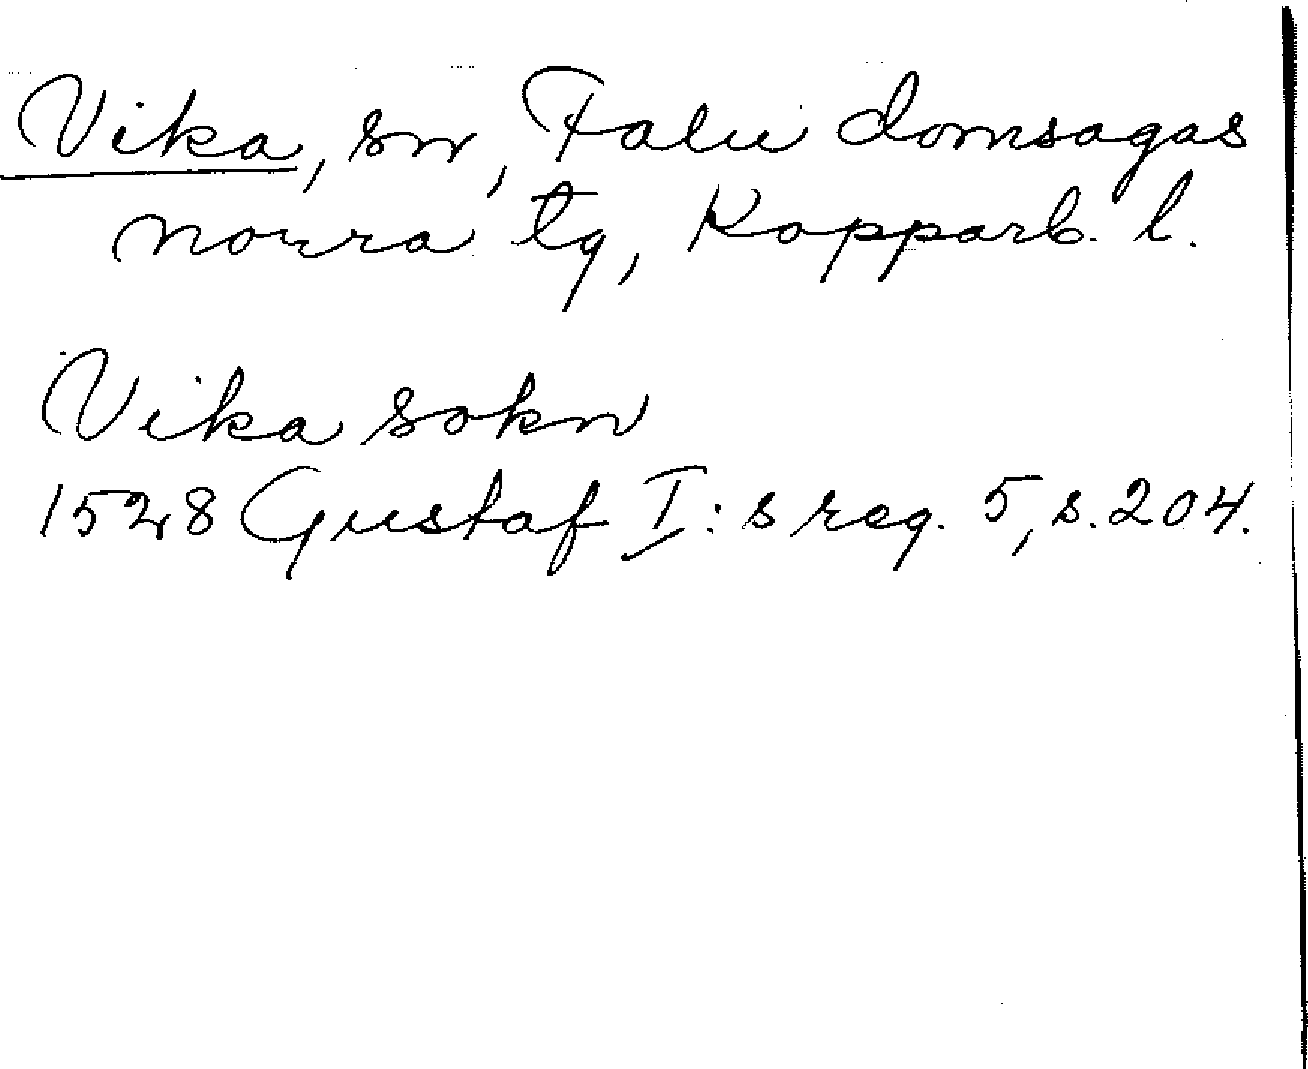 Vika, sn, Falu domsagas
norra tg, Kopparb. l.
Vika sokn
1528 Gustaf I: s reg. 5, s. 204.